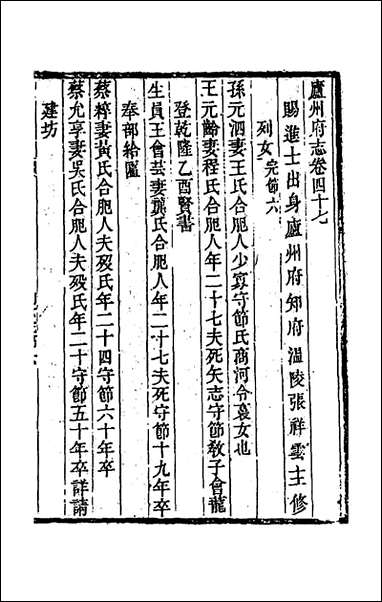 廬州府志卷四十七
賜進士出身廬州府知府溫陵張祥雲主修
列女完節六
孫元泗妻王氏合肥人少寡守節氏商河令裛女也
王元齡妻程氏合肥人年二十七夫死矢志守節敎子會龍
登乾隆乙酉賢書
生員王會芸妻龔氏合肥人年二十七夫死守節十九年卒
奉部給匾
蔡粹妻黃氏合肥人夫歿氏年二十四守節六十年卒
蔡允享妻吳氏合肥人夫歿氏年二十守節五十年卒詳請
建坊